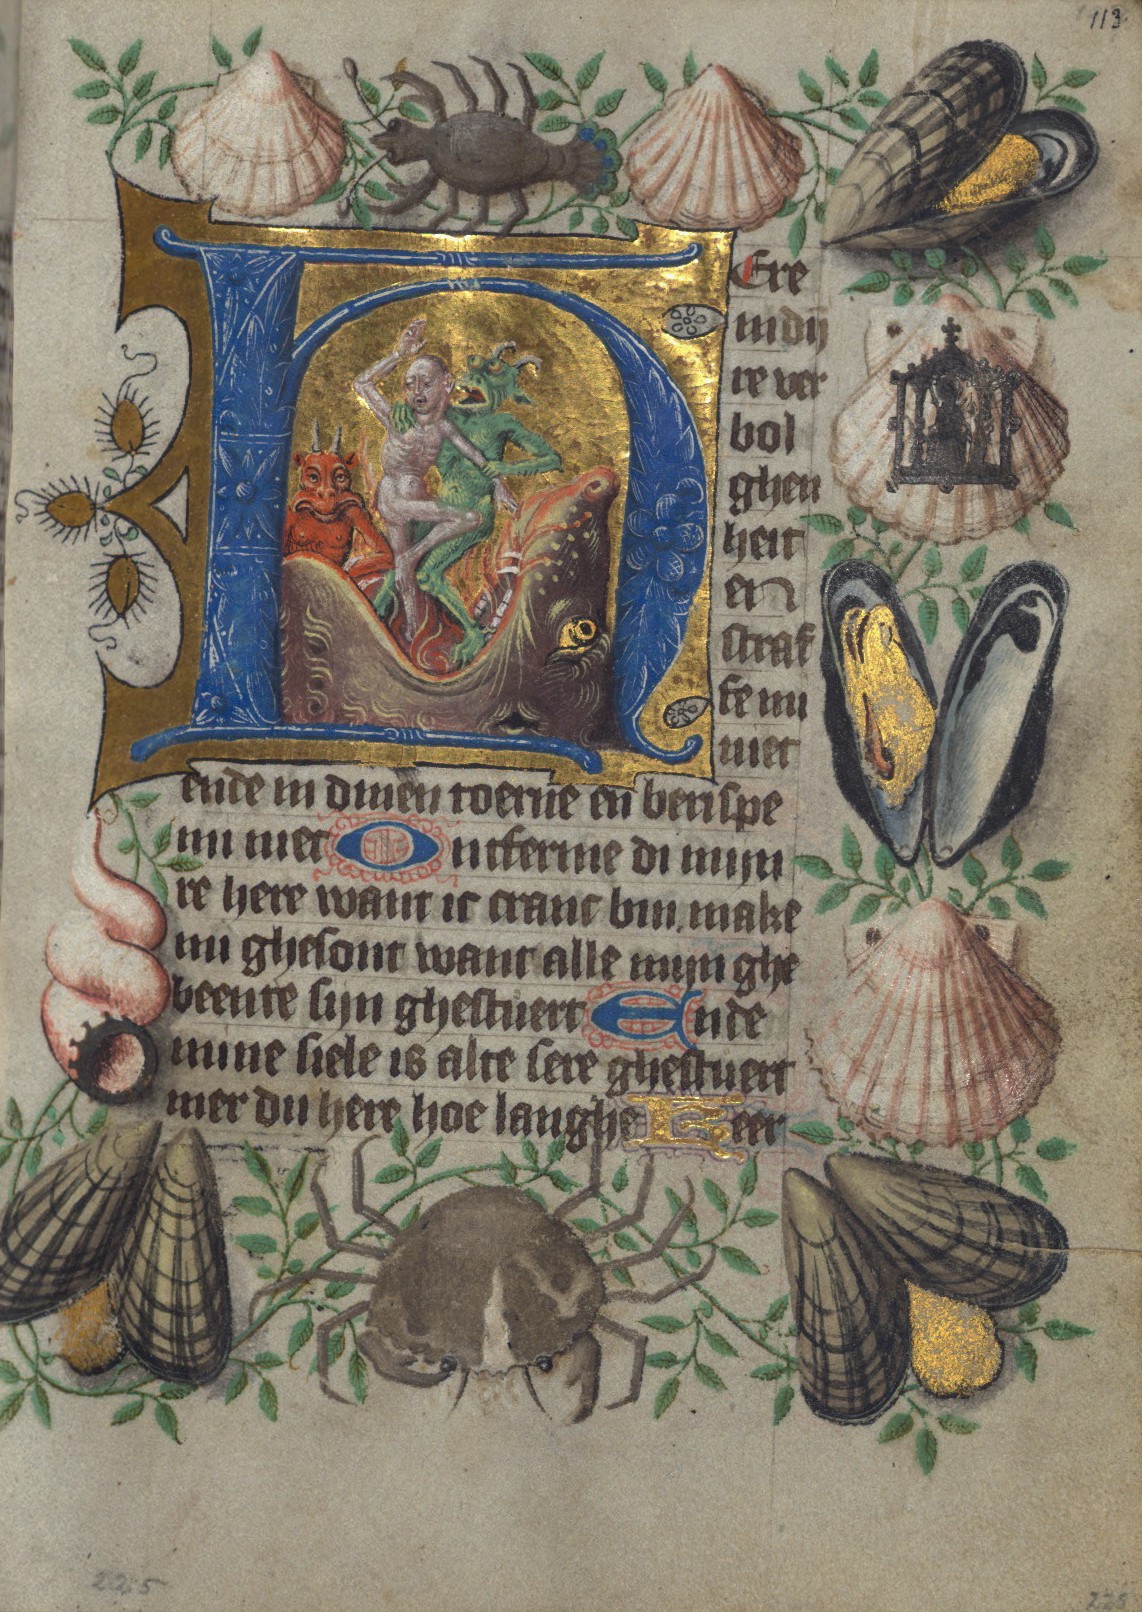 113
HEre
in dij
re ver
bol
ghen
heit
en
straf
fe mi
niet
ende in dinen toerne en berispe
mi niet Ontferme di mijn
re here want ic cranc bin make
mi ghesont want alle mijn ghe
beente sijn ghestuert Ende
mine siele is alte sere ghestuert
mer du here hoe langhe Heer
225
225